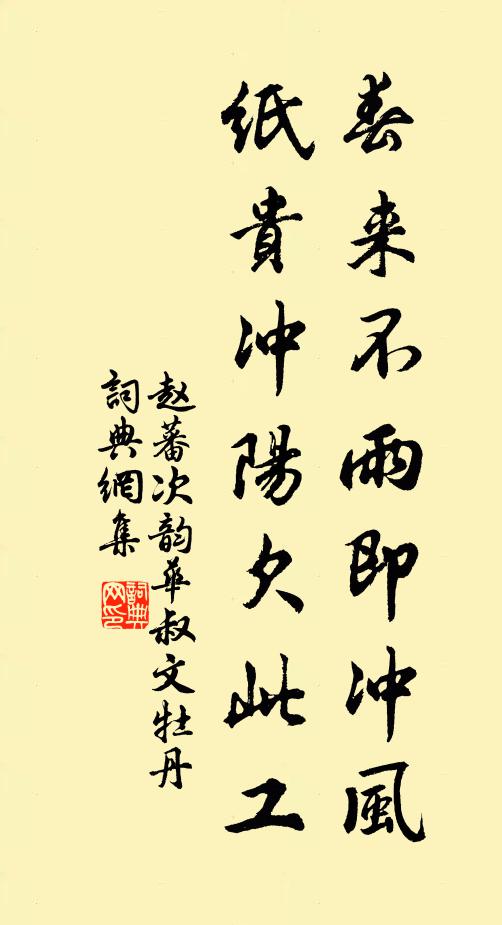 春来不雨即冲風
紙貴冲陽欠此工
赵蕃次韵華叔文牡丹
詞典網集
詞典网印